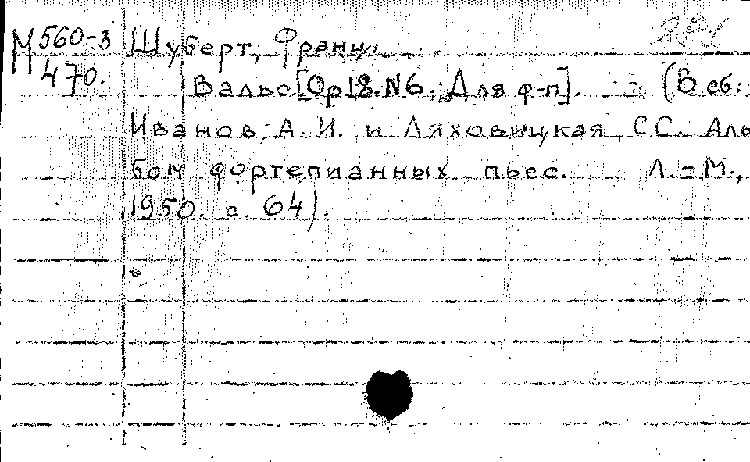 М 560-3 Шуберт, Франц.
470. Вальс [Op 18. N6. Для ф-п]. (В сб:
Иванов, А. И. и Ляховицкая С С. Аль
бом фортепианных пьес. Л.-М.,
1950. с 64).